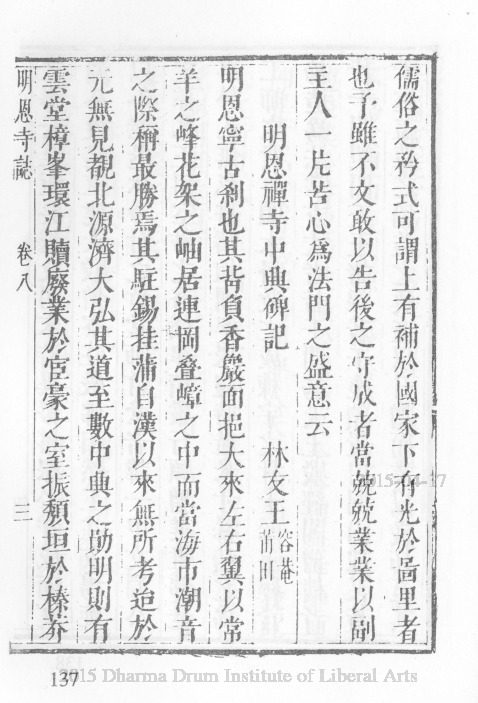 儒俗之矜式可謂上有補於國家下有光於啚里者
也予雖不文敢以告後之守成者當兢兢業業以副
主人一片苦心爲法門之盛意云
明恩禪寺中典碑記 林友王 容菴 莆田
明恩寧古刹也其背負香嚴面挹大來左右翼以常
羊之峰花架之岫居連岡叠嶂之中而當海市潮音
之際稱最勝焉其駐錫挂蒲自漢以來無所考迨於
元無見覩北源濟大弘其道至數中典之勛明則有
雲堂樟峯環江贖廢業於宦豪之室振頽垣於榛莽
明恩寺誌 卷八 三
2015-04-17
137
2015 Dharma Drum Institute of Liberal Arts